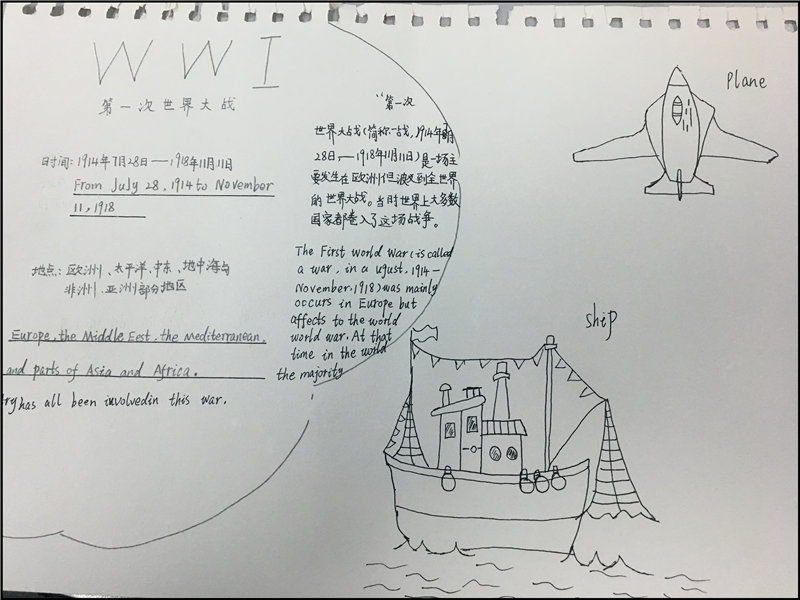 WWI
第一次世界大战
时间：1914年7月28日——1918年11月11日
From July 28, 1914 to November
11, 1918
地点：欧洲、太平洋、中东、地中海与
非洲、亚洲部分地区
Europe, the Middle East, the Mediterranean,
and parts of Asia and Africa.
try has all been involvedin this war.
“第一次
世界大战（简称一战，1914年7月
28日，——1918年11月11日）是一场主
要发生在欧洲但波及到全世界
的世界大战。当时世界上大多数
国家都卷入了这场战争。
The First world War (is called
a war, in a ugust, 1914—
November, 1918) was mainly
occurs in Europe but
affects to the world
world war. At that
time in the world
the majority
Plane
ship